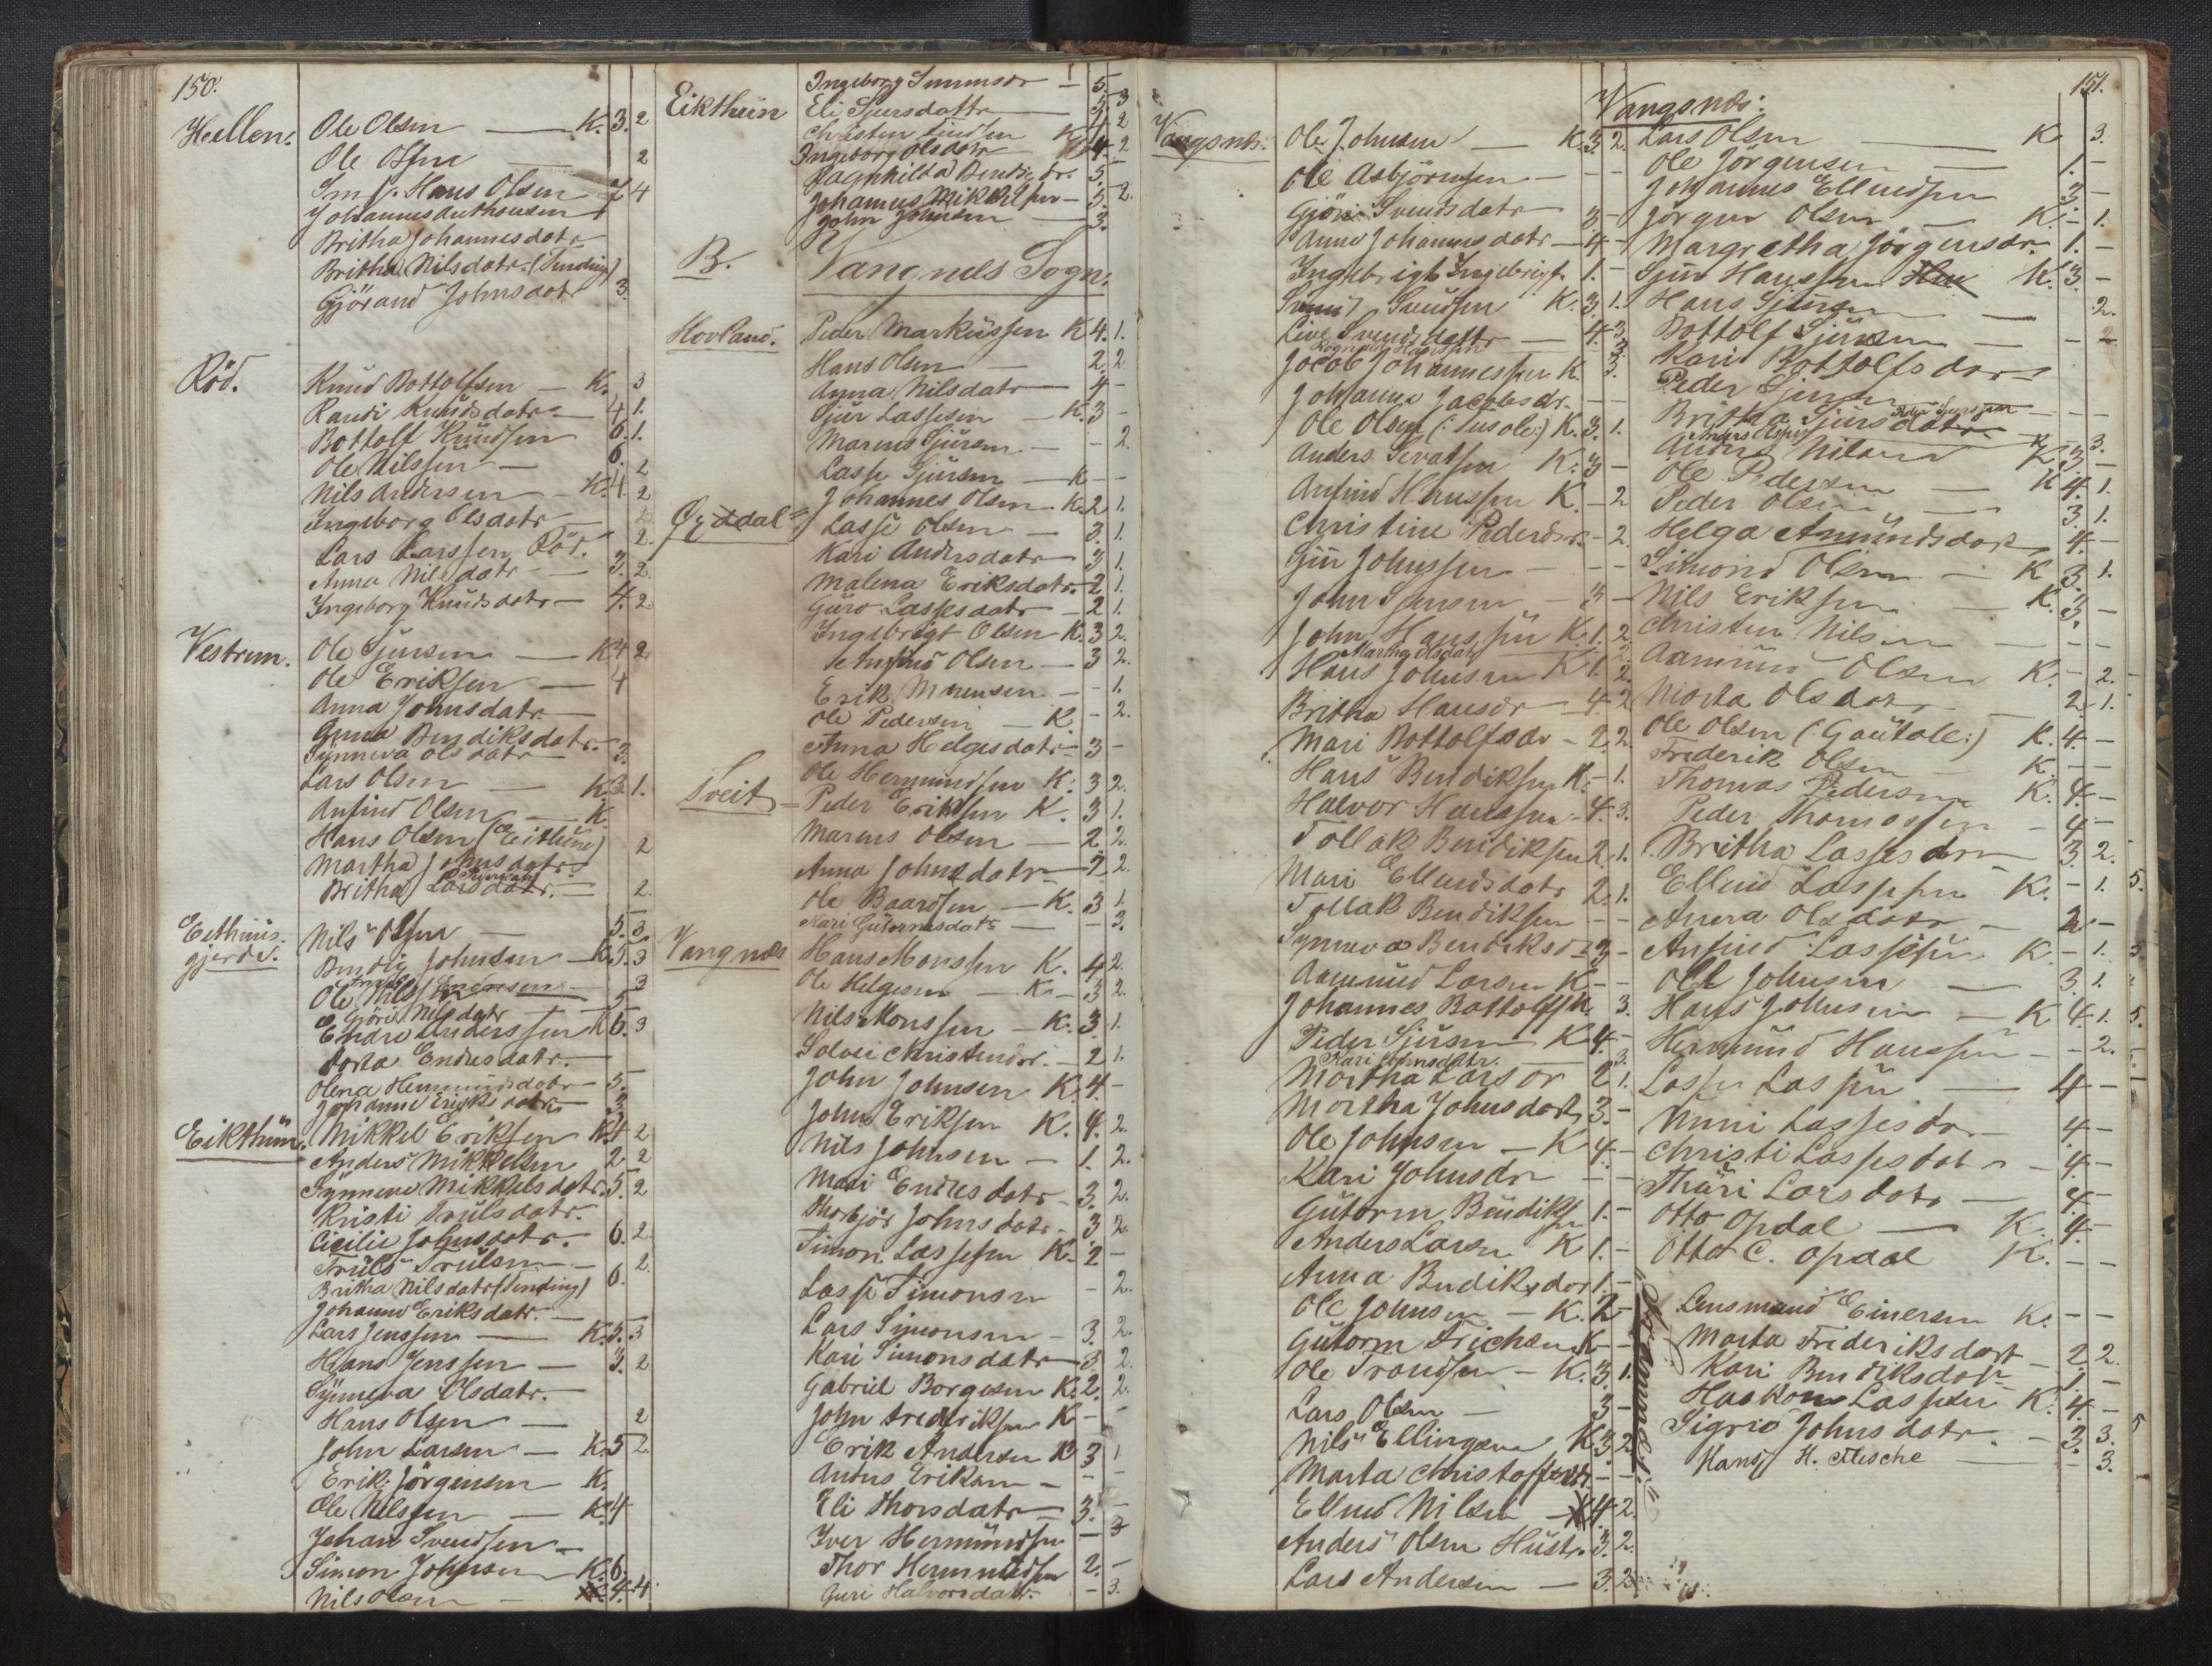 150.
Hellen. Ole Olsen — K. 3. 2
Ole Olsen — 2
Hans Olsen 7 4
Johannes Anthonsen
Britha Johannesdatr
Britha Nilsdatr. (Tending)
Gjörand Johnsdatr 3.
Röd. Knud Bottolfsen — K. 3
Randi Knudsdatr — 4 1.
Bottolf Knudsen 6. 1.
Ole Nilssen — 6.
Nils Andersen — K. 4. 2
Ingeborg Olsdatr 2
Lars Larssen Röd. 2.
Anna Nilsdatr — 3. 2
Ingeborg Knudsdatr — 4. 2
Vestrem. Ole Sjursen — K 4 2
Ole Eriksen — 4
Anna Johnsdatr. —
Anna Bendiksdatr. —
Synneva Olsdatr 3.
Lars Olsen — K. 3 1.
Anfind Olsen — K
Hans Olsen (Eithun) 2
Martha Johnsdatr.
Britha Larsdatr. — 2.
Eithuns-
gjerde. Nils Olsen — 5. 3
Bendix Johnsen — K. 5. 3
Ole Nilssen 3
Göri Nilsdatr 5
Endre Anderssen K 6. 3
Dorta Endresdatr. —
Olena Hermundsdatr — 5.
Johanne Eriksdatr — 3.
Eikthun. Mikkel Eriksen K. 4 2
Anders Mikkelsen 2. 2
Synneve Mikkelsdatr. 5. 2
Kristi Trulsdatr.
Cicilie Johnsdatr. 6. 2.
Truls Trulsen — 2.
Britha Nilsdatr (Tending) 6.
Johanne Eriksdatr. —
Lars Jenssen — K. 5. 3
Hans Jenssen — 3. 2
Synneva Olsdatr. —
Hans Olsen — 2
John Larsen — K. 5 2
Erik Jörgensen K.
Ole Nilssen — K. 4
Johan Svendsen —
Simon Johnsen K. 6.
Nils Olsen — K. 4. 4.
Ingeborg Simonsdr — 5.
Eikthun Eli Sjursdattr — 3. 3
Christen K 4 2
Ingeborg Olsdatr 4. 2
Ragnhilda Bendixdr. 5.
Johannes Mikkelsen — 5. 2.
John Johnsen — 3.
B. Vangnæs Sogn.
Hovland. Peder Markussen K 4. 1.
Hans Olsen — 2. 2
Anna Nilsdatr — 4 -
Sjur Lassesen — K. 3 -
Marcus Sjursen — - 2.
Lasse Sjursen — K - -
Johannes Olsen K. 2 1.
Lasse Olsen — 3. 1.
Kari Andersdatr — 3 1.
Malena Eriksdatr. - 2 1.
Guro Lassesdatr — 2 1.
Ingebrigt Olsen K. 3 2.
Anfind Olsen — 3 2.
Erik Monsen — - 1.
Ole Pedersen — K. - 2.
Anna Helgesdatr — 3 -
Ole Hermundsen K. 3 2.
Tveit — Peder Eriksen K. 3 1.
Marcus Olsen — 2. 2
Anna Johnsdatr — 2. 2.
Ole Baardsen — K. 3 1.
Kari Gutormsdatr — - 3.
Vangnæs Hans Monssen K. 4 2.
Ole Helgesen — K. - 3 2.
Nils Monssen — K. 3 1.
Solvei Christensdr. - 2 1.
John Johnsen K. 4. -
John Eriksen K. 4. 2.
Nils Johnsen — 1. 2.
Mari Endresdatr - 3. 2.
Thorbjør Johnsdatr - 3 2.
Simon Lassesen K. - 2 -
Lasse Simonsen - 2.
Lars Simonsen - 3. 2.
Kari Simonsdatr — 3 2.
Gabriel Borgesen K. 2. 2.
John Frederiksen K - -
Erik Andersen K 3 1
Anders Eriksen - - -
Eli Thorsdatr — 3. -
Iver Hermundsen — 3
Thor Hermundsen 2. -
Guri Halvorsdatr. - 3.
151.
Vangsnæs:
Vangsnæs. Ole Johnsen — K. 3. 2.
Ole Asbjörnsen — - -
Gjöri Svendsdatr — 3 -
Anna Johannesdatr — 4 -
Ingebrigt Ingebrigts. 1. -
Svend Svendsen K. 3 1.
Live Svendsdattr — 4. 3.
Jacob Johannessen K. 3.
Johanna Jacobsdr. - -
Ole Olsen (: Lusole:) K. 3. 1.
Anders Sivatsen K. 3 -
Anfind Hanssen K. - 2
Christine Pedersdr. - 2.
Gju Johnssen — - -
John Sjursen — 3 -
John Hanssen K. 1. 2
Martha Olsdatr 2.
Hans Johnsen K 1. 2.
Britha Hansdr — 4 2
Mari Bottolfsdr - 2. 2
Hans Bendiksen K. - 1.
Halvor Hanssen - 4. 3.
Tollak Bendiksen 2. 1.
Mari Ellendsdatr 2. 1.
Tollak Bendiksen - -
Synneva Bendiksdr 3 -
Aamund Larsen K. - -
Johannes Bottolfsen 3.
Peder Sjursen K 4. -
Kari Johnsdatr. 3.
Martha Larsdr 2 1.
Martha Johnsdatr 3. -
Ole Johnsen — K 4. -
Kari Johnsdr - -
Gutorm Bendiksen 1. -
Anders Larsen K 1. -
Anna Bendiksdtr 1. -
Ole Johnsen — K. 2 -
Gutorm Erichsen K - -
Ole Trondsen — K. 3 1.
Lars Olsen — 3 -
Nils Ellingsen K 3 2
Marta Christoffersdtr. - -
Ellend Nilsen K 4. 2.
Anders Olsen Hustr. 3. 2.
Lars Andersen — 3. 2.
Lars Olsen — K 3.
Ole Jörgensen — 1. -
Johannes Ellendsen 3 -
Jörgen Olsen — K. - 1.
Margretha Jörgensdr. 1. -
Sjur Hanssen K. 3. -
Hans Sjursen — 2.
Bottolf Sjursen — - 2
Kari Bottolfsdtr
Peder Sjursen
Peder Sjurssen
Britha Sjursdatr — - -
Anders Olsen K 3.
Anders Nilsen K. 3 -
Ole Pedersen — K 4. 1.
Peder Olsen — 3. 1.
Helga Amundsdatr 4. -
Simond Olsen — K 3 1.
Nils Eriksen — K. 3. -
Christen Nilsen - -
Aamund Olsen K. - 2.
Marta Olsdatr 2. 1.
Ole Olsen (: Gautole:) K. 4. -
Frederik Olsen K. - -
Thomas Pedersen K. 4. -
Peder Thomassen - 4 -
Britha Lassesdtr — 3. 2.
Ellend Lassesen K. - 1. 5.
Anna Olsdatr — 2. -
Anfind Lassesen K. - 1. 5
Ole Johnsen — 3 1.
Hans Johnsen — K 4. 1. 5.
Hermund Hanssen — - 2.
Lasse Lassen — 4 -
Anni Lassesdr. — 4 -
Christi Lassesdatr — 4. -
Thuri Larsdatr — 4. -
Otto Opdal — K. 4. -
Otto C. Opdal K. - -
Lensmand Einersen K. - -
Marta Frederiksdatr — 2. 2.
Kari Bendiksdatr 1. -
Haakon Lassesen K. 4. -
Sigrid Johnsdatr. — 3. 3. 5
Hans H. Flesche — - 3.